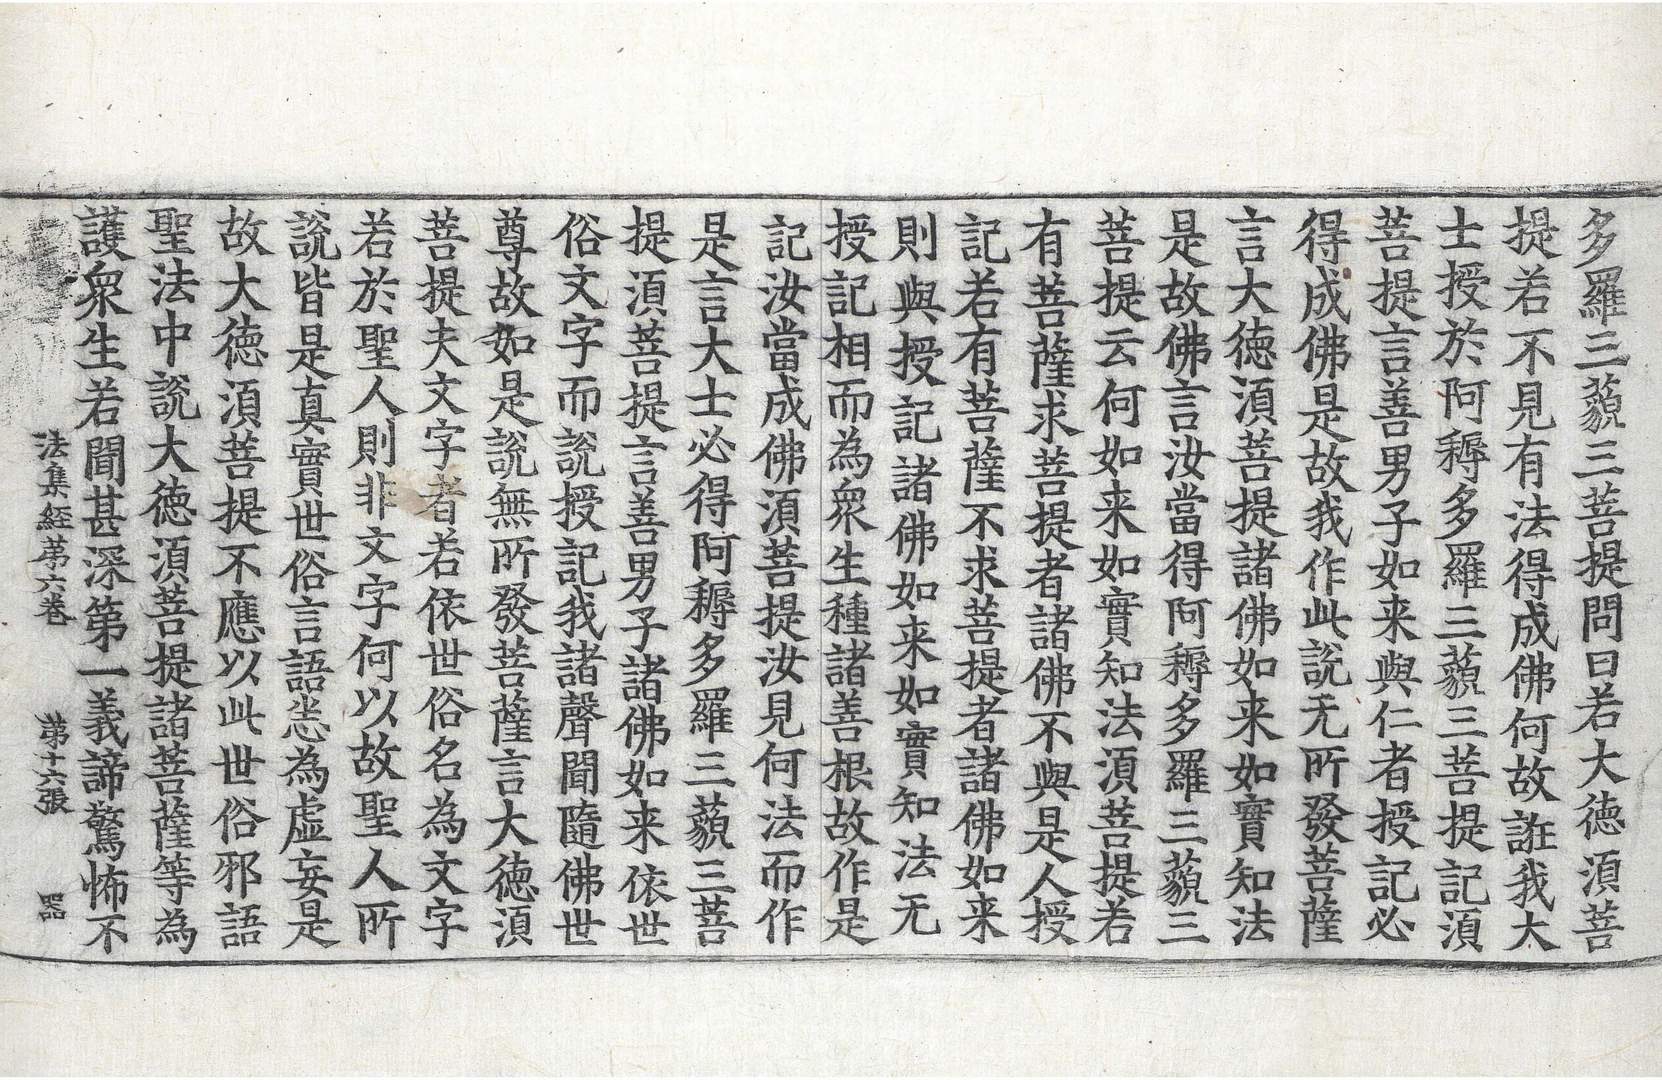 多羅三藐三菩提問曰若大德湏菩
提若不見有法得成佛何故誑我大
士授於阿耨多羅三藐三菩提記湏
菩提言善男子如来與仁者授記必
得成佛是故我作此說无所發菩薩
言大德湏菩提諸佛如来如實知法
是故佛言汝當得阿耨多羅三藐三
菩提云何如来如實知法湏菩提若
有菩薩求菩提者諸佛不與是人授
記若有菩薩不求菩提者諸佛如来
則與授記諸佛如来如實知法无
授記相而為衆生種諸善根故作是
記汝當成佛湏菩提汝見何法而作
是言大士必得阿耨多羅三藐三菩
提湏菩提言善男子諸佛如来依世
俗文字而說授記我諸聲聞隨佛世
尊故如是說無所發菩薩言大德湏
菩提夫文字者若依世俗名為文字
若於聖人則非文字何以故聖人所
說皆是真實世俗言語悉為虛妄是
故大德湏菩提不應以此世俗邪語
聖法中說大德湏菩提諸菩薩等為
護衆生若聞甚深第一義諦驚怖不
法集経苐六巻 苐十六張 器